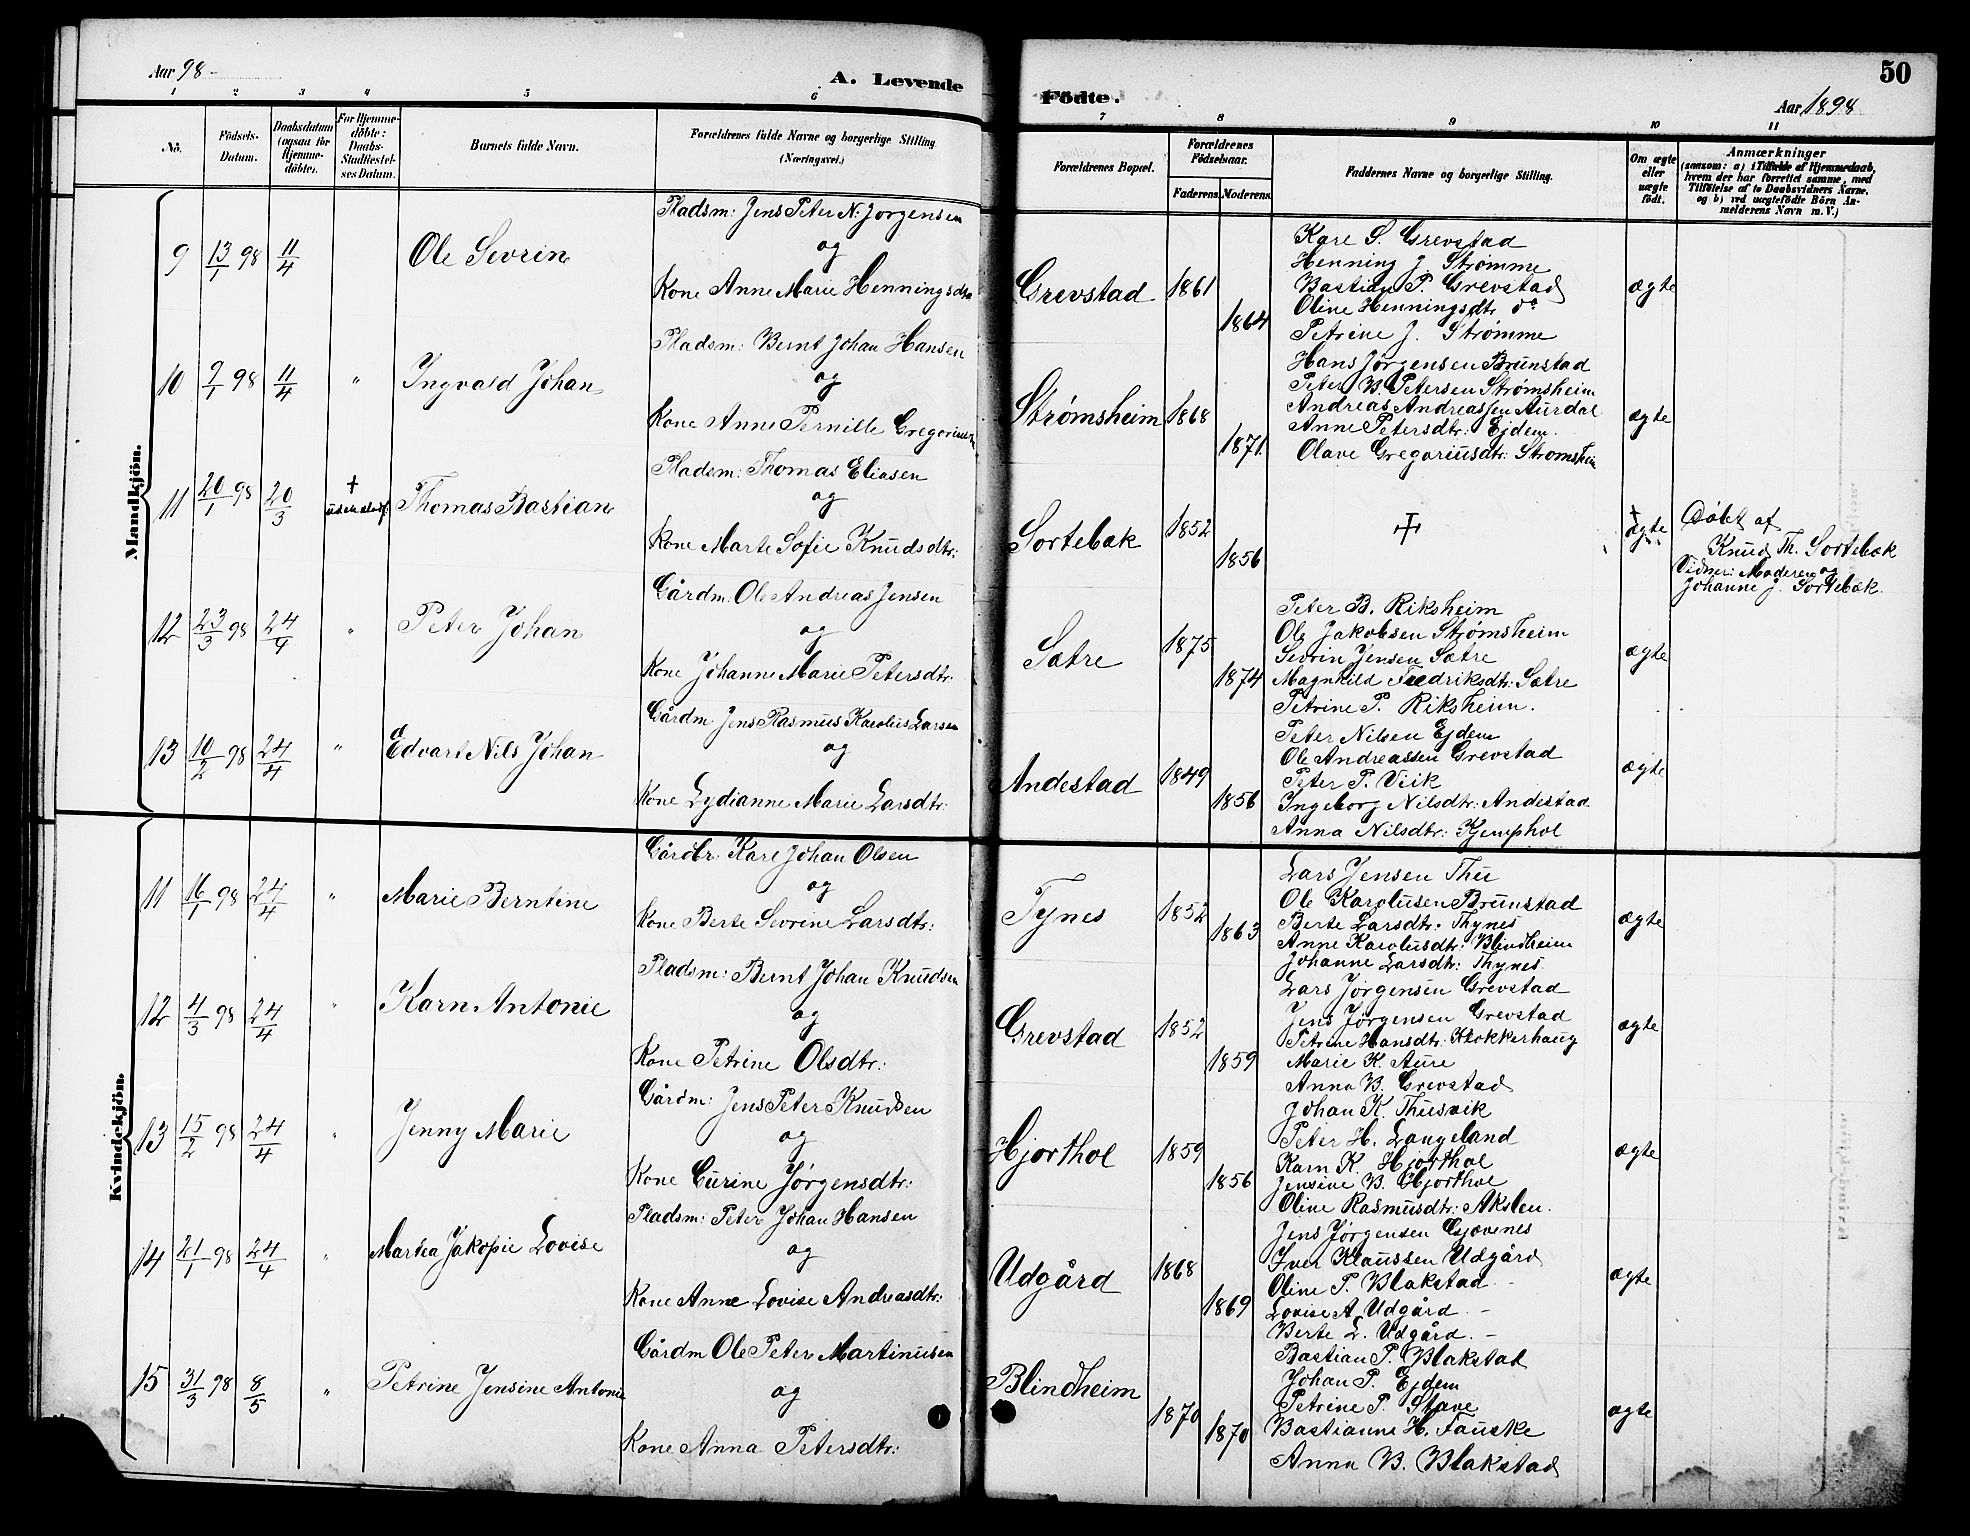 Aar 98
A. Levende
1 2 3 4 5 6
No.
Födsels-
Datum.
Daabsdatum
(ogsaa for
Hjemme-
döbte).
For Hjemme-
döbte:
Daabs-
Stadfæstel-
ses Datum.
Barnets fulde Navn.
Forældrenes fulde Navne og borgerlige Stilling
(Næringsvei.)
Mandkjön.
9 13/1 98 11/4 Ole Sevrin
Pladsm: Jens Peter N. Jørgensen
og
Kone Anne Marie Henningsdtr
10 9/1 98 11/4 " Ingvald Johan
Pladsm: Bernt Johan Hansen
og
Kone Anne Pernille Gregoriusdtr
11 20/1 98 20/3 † Thomas Bastian
Pladsm: Thomas Eliasen
og
Kone Marte Sofie Knudsdtr:
12 23/3 98 24/4 " Peter Johan
Gårdm: Ole Andreas Jensen
og
Kone Johanne Marie Petersdtr:
13 10/2 98 24/4 " Edvart Nils Johan
Gårdm Jens Rasmus Karolus Larsen
og
Kone Lydianne Marie Larsdtr:
Kvindekjön.
11 16/1 98 24/4 " Marie Berntine
Gårdbr: Kare Johan Olsen
og
Kone Berte Sevrine Larsdtr:
12 4/3 98 24/4 " Karn Antonie
Pladsm: Bernt Johan Knudsen
og
Kone Petrine Olsdtr:
13 15/2 98 24/4 " Jenny Marie
Gårdm: Jens Peter Knudsen
og
Kone Gurine Jørgensdtr:
14 21/1 98 24/4 " Martea Jakopie Lovise
Pladsm: Peter Johan Hansen
og
Kone Anne Lovise Andreasdtr:
15 31/3 98 8/5 " Petrine Jensine Antonie
Gårdm Ole Peter Martinusen
og
Kone Anna Petersdtr:
50
Födte.
Aar 1898
7 8 9 10 11
Forældrenes Bopæl.
Forældrenes
Födselsaar.
Faderens. Moderens.
Faddernes Navne og borgerlige Stilling.
Om ægte
eller
uægte
födt.
Anmærkninger
(saasom: a) i Tilfælde af Hjemmedaab,
hvem der har forrettet samme, med
Tilföielse af to Daabsvidners Navne,
og b) ved uægtefödte Börn An-
melderens Navn m. V.)
Grevstad 1861 1864 ægte
Kare S. Grevstad
Henning J. Strømme
Bastian P. Grevstad
Oline Henningsdtr do
Petrine J. Strømme
Strømsheim 1868 1871. ægte
Hans Jørgensen Brunstad
Peter B. Petersen Strømsheim
Andreas Andreassen Aurdal
Anne Petersdtr: Ejdem.
Olave Gregoriusdtr: Strømsheim
Sortebæk 1852 1856 † † ægte
Døbt af
Knud Th. Sortebæk
Vidner: Moderen og
Johanne J. Sortebæk.
Sætre 1875 1874 ægte
Peter B. Riksheim
Ole Jakobsen Strømsheim
Sevrin Jensen Sætre
Magnhild Fredriksdtr: Sætre
Petrine P. Riksheim.
Andestad 1849 1856 ægte
Peter Nilsen Ejdem
Ole Andreassen Grevstad
Peter P. Viik
Ingeborg Nilsdtr: Andestad
Anna Nilsdtr: Kjemphol
Tynes 1852 1863 ægte
Lars Jensen Thu
Ole Karolusen Brunstad
Berte Larsdtr: Thynes
Anne Karolusdtr: Blindheim
Johanne Larsdtr: Thynes.
Grevstad 1852 1859 ægte
Lars Jørgensen Grevstad
Jens Jørgensen Grevstad
Petrine Hansdtr: Klokkerhaug
Marie K. Aure
Anna B. Grevstad
Hjorthol 1859 1856 ægte
Johan K. Thusvik
Peter H. Langeland
Karn K. Hjorthol
Jensine B. Hjorthol
Oline Rasmusdtr: Akslen.
Udgård 1868 1869 ægte
Jens Jørgensen Gjøvenes
Iver Klaussen Udgård
Oline P. Blakstad
Lovise A. Udgård. -
Berte L. Udgård. -
Blindheim 1870 1870 ægte
Bastian P. Blakstad
Johan P. Ejdem
Petrine P. Stave
Bastianne H. Fauske
Anna B. Blakstad